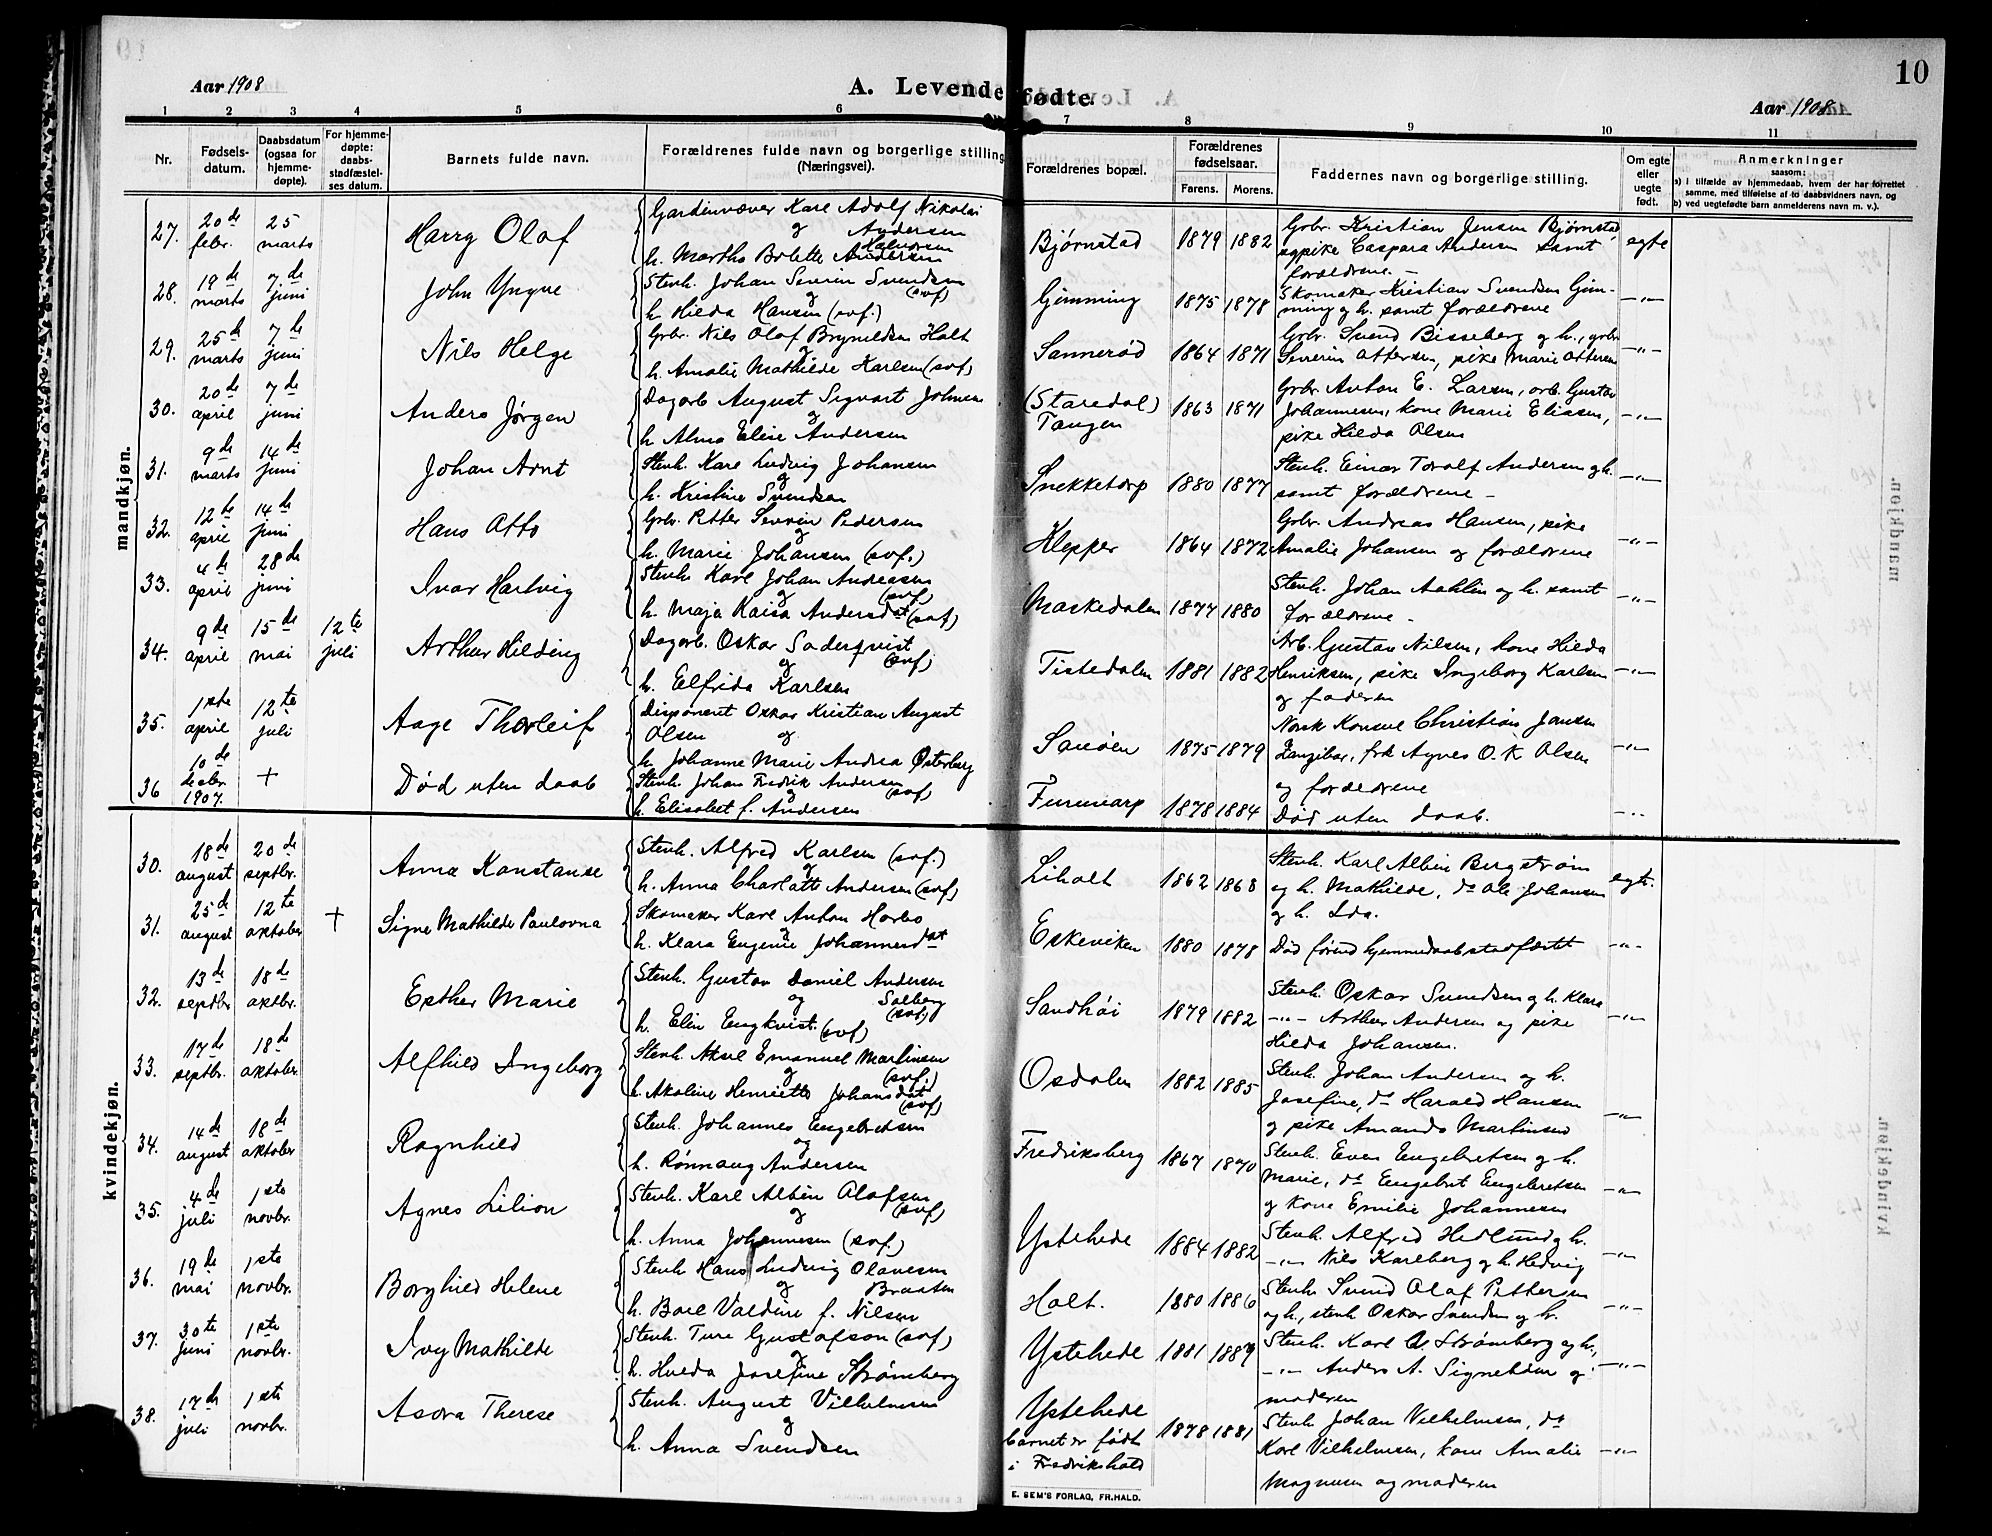 Aar 1908
A. Levende fødte.
10
Aar 1908
1 2 3 4 5 6 7 8 9 10 11
Nr.
Fødsels-
datum.
Daabsdatum
(ogsaa for
hjemme-
døpte).
For hjemme-
døpte:
daabs-
stadfæstel-
ses datum.
Barnets fulde navn.
Forældrenes fulde navn og borgerlige stilling
(Næringsvei).
Forældrenes bopæl.
Forældrenes
fødselsaar.
Farens. Morens.
Faddernes navn og borgerlige stilling.
Om egte
eller
uegte
født.
Anmerkninger
saasom:
a) i tilfælde av hjemmedaab, hvem der har forrettet
samme, med tilføielse af to daabsvidners navn, og
b) ved uegtefødte barn anmelderens navn m. v.).
mandkjøn.
27. 20de febr. 25 marts
Harry Olaf
Gardinvæver Karl Adolf Nikolai
og Andersen
Halvorsen
h. Martha Bolette Andersen
Bjørnstad 1879 1882
Grbr. Kristian Jensen Bjørnstad
og pike Caspara Andersen samt
forældrene. –
egte
28. 19de marts 7de juni
John Yngve
Stenh. Johan Severin Svendsen
og (svf)
h. Hilda Hansen (svf.)
Gimming 1875 1878
Skomaker Kristian Svendsen Gim-
ming og h. samt forældrene
–"–
29. 25de marts 7de juni
Nils Helge
Grbr. Nils Olaf Brynildsen Holt
og
h. Amalie Mathilde Karlsen (svf)
Sannerød 1864 1871
Grbr. Svend Bisseberg og h., grbr.
Severin Ottersen, pike Marie Ottersen
–"–
30. 20de april 7de juni
Anders Jørgen
Dagarb August Sigvart Johnsen
og
h. Alma Elise Andersen
(Staredal)
Tangen 1863 1871
Grbr Anton E. Larsen, arb. Gustav
Johannesen, kone Marie Eliesen,
pike Hilda Olsen
–"–
31. 9de marts 14de juni
Johan Arnt
Stenh. Karl Ludvig Johansen
og
h. Kristine Svendsen
Snekketorp 1880 1877
Stenh. Einar Toralf Andersen og h.
samt forældrene –
–"–
32. 12te april 14de juni
Hans Otto
Grbr. Petter Severin Pedersen
og
h. Marie Johansen (svf.)
Klepper 1864 1872
Grbr. Andreas Hansen, pike
Amalie Johansen og forældrene
–"–
33. 4de april 28de juni
Ivar Hartvig
Stenh. Karl Johan Andreasen
og (svf)
h. Maja Kaisa Andersdat (svf)
Maskedalen 1877 1880
Stenh. Johan Aahlin og h. samt
forældrene –
–"–
34. 9de april 15de mai 12te juli
Arthur Hilding
Dagarb. Oskar Soderqvist
og (svf)
h. Elfrida Karlsen
Tistedalen 1881 1882
Arb. Gustav Nilsen, kone Hilda
Henriksen, pike Ingeborg Karlsen
og faderen
–"–
35. 1ste april 12te juli
Aage Thorleif
Disponent Oskar Kristian August
Olsen og
h. Johanne Marie Andrea Østerberg
Sauøen 1875 1879
Norsk Konsul Christian Jansen
Zanzibar, frk Agnes O. K Olsen
og forældrene
–"–
36 10de decbr. 1907. +
Død uten daab
Stenh. Johan Fredrik Andersen
og (svf)
h. Elisabet f. Andersen
Furuvarp 1878 1884
Død uten daab.
–"–
kvindekjøn.
30. 18de august 20de septbr.
Anna Konstanse
Stenh. Alfred Karlsen (svf.)
og
h. Anna Charlotte Andersen (svf)
Liholt 1862 1868
Stenh. Karl Albin Bergstrøm
og h. Mathilde, do Ole Johansen
og h. Ida.
egte.
31. 25de august 12te oktober +
Signe Mathilde Paulovna
Skomaker Karl Anton Horbo
og
h. Klara Eugenie Johannesdat
Eskeviken 1880 1878
Død førend hjemmedaab stadfæstet
–"–
32. 13de septbr 18de oktbr.
Esther Marie
Stenh. Gustav Daniel Andersen
og Solberg
(svf)
h. Elin Engkvist. (svf)
Sandhøi 1879 1882
Stenh. Oskar Svendsen og h. Klara
–"– Arthur Andersen og pike
Hilda Johansen.
–"–
33. 17de septbr. 18de oktober
Alfhild Ingeborg
Stenh. Aksel Emanuel Martinsen
og (svf.)
h. Akoline Henriette Johansdat
(svf)
Osdalen 1882 1885
Stenh. Johan Andersen og h.
Josefine, do Harald Hansen
og pike Amanda Martinsen
–"–
34. 14de august 18de oktober
Ragnhild
Stenh. Johannes Engebretsen
og
h. Rønnaug Andersen
Fredriksberg 1867 1870
Stenh. Even Engebretsen og h.
Marie, do Engebret Engebretsen
og kone Emilie Johannesen
–"–
35. 4de juli 1ste novbr.
Agnes Lilian
Stenh. Karl Albin Olafsen
og (svf)
h. Anna Johannesen (svf.)
Ystehede 1884 1882
Stenh. Alfred Hedlund og h.
–"– Nils Karlberg og h. Hedvig
–"–
36. 19de mai 1ste novbr.
Borghild Helene
Stenh Hans Ludvig Olavesen
og Braaten
h. Borel Valdine f. Nilsen
Holt. 1880 1886
Stenh. Svend Olaf Pettersen
og h., stenh Oskar Svendsen og h.
–"–
37. 30te juni 1ste novbr.
Ivy Mathilde
Stenh. Ture Gustafson (svf)
og
h. Hulda Josefine Strømberg
Ystehede 1881 1889
Stenh. Karl A Strømberg og h.,
–"– Anders A. Signebøen og
moderen
–"–
38. 17de juli 1ste novbr.
Asora Therese
Stenh. August Vilhelmsen
og
h. Anna Svendsen
Ystehede
barnet er født
i Fredrikshald
1878 1881
Stenh Johan Vilhelmsen, do
Karl Vilhelmsen, kone Amalie
Magnusen og moderen
–"–
E. SEM'S FORLAG, FR.HALD.